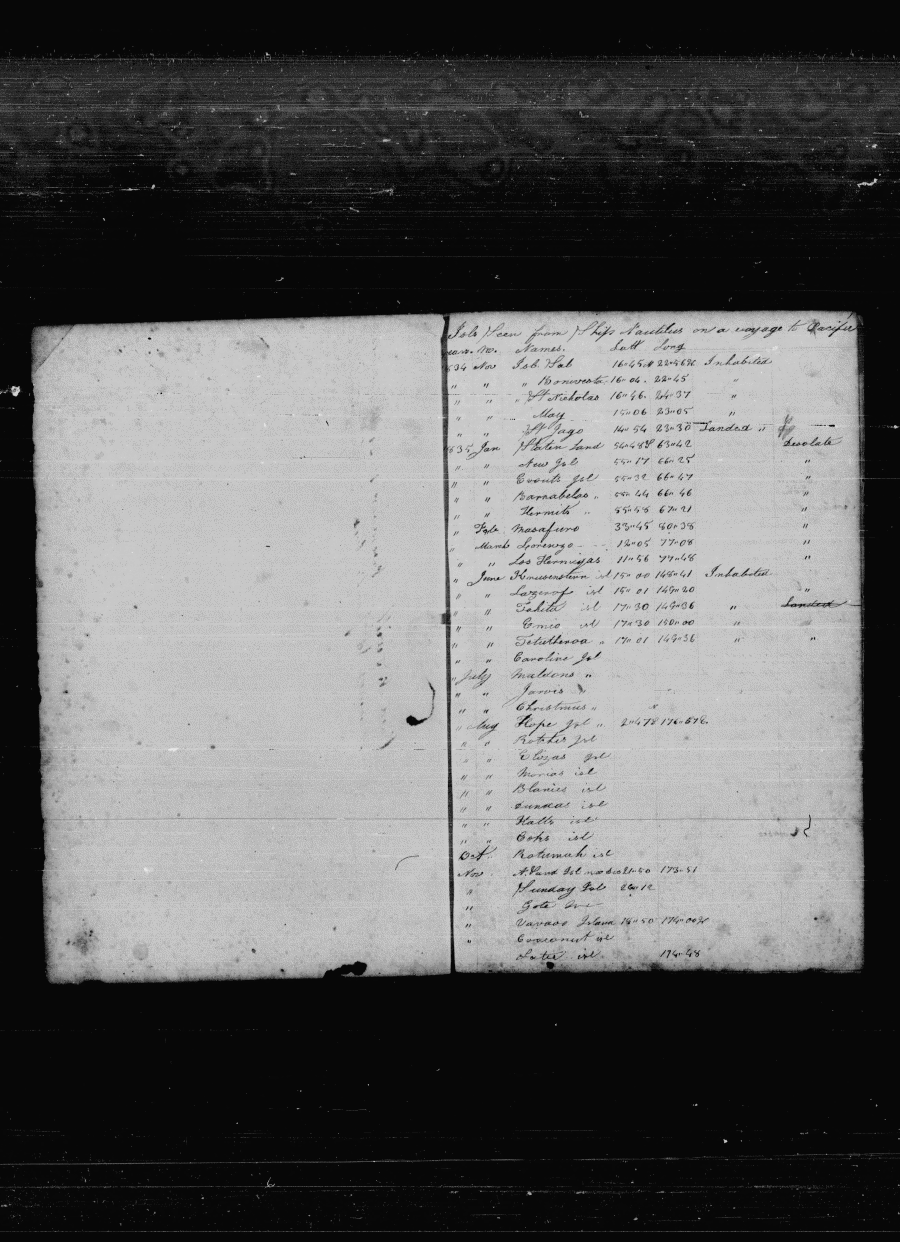 Isls Seen from Ship Nautilus on a voyage to Pacific
Names. Latt Long
Nov Isl. Sal 16"45 22"56 Inhabited
" " " Bonevesta. 16"04. 22"45 "
" " " St Nicholas 16"46. 24"37 "
" " May 15"06 23"05 "
" " St Jago 14"54 23"30 Landed "
1835 Jan Staten Land 54"48S 63"42 Desolate
" " New Isl 55"17 66"25 "
" " Evouts Isl 55"32 66"47 "
" " Barnabelas " 55"44 66"46 "
" " Hermits " 55"48 67"21 "
" Feb. Masafuro 33"45 80"38 "
" March Lorenzo 12"05 77"08 "
" " Los Hermigas 11"56 77"48 "
" June Krusenstern isl 15"00 148"41 Inhabited
" " Lazerof isl 15"01 149"20 "
" " Tahita isl 17"30 149"36 " Landed
" " Emio isl 17"30 150"00 "
" " Tetutheroa " 17"01 149"36 " "
" " Caroline Isl
" July Maldons "
" " Jarvis "
" " Christmus "
" Aug Hope Isl " 2"47S 176"
" " Rotches Isl
" " Elizas Isl
" " Marias isl
" " Blanies isl
" " Dundas isl
" " Halls isl
" " Coks isl
Oct. Rotumah isl
Nov. Isl 21"50 173"51
" Sunday Isl 29"12
" Gote
" Vavaoo Island 18"50 174"00
" Cocoanut isl
Latei isl 174"48